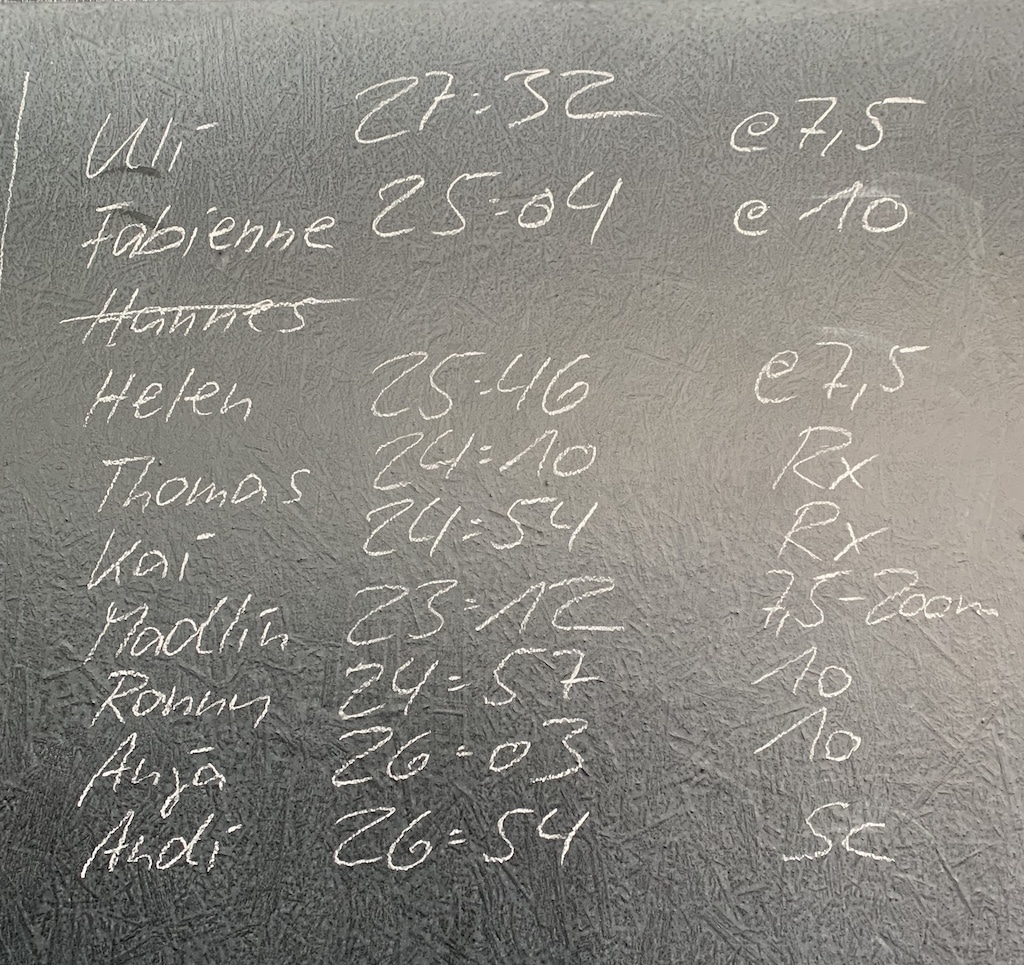 Uli 27:32 @7,5
Fabienne 25:04 @10
Hannes
Helen 25:46 @7,5
Thomas 24:10 Rx
Kai 24:54 Rx
Madlin 23:12 7,5-200m
Ronny 24:57 10
Anja 26:03 10
Andi 26:54 Sc